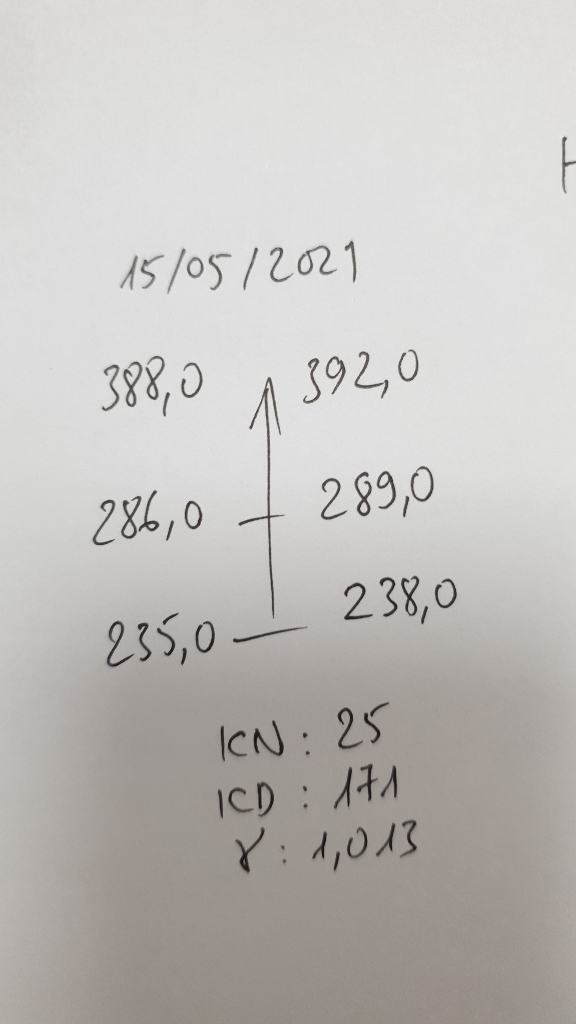 H
15/05/2021
388,0 392,0
286,0 289,0
235,0 238,0
ICN : 25
ICD : 171
γ : 1,013